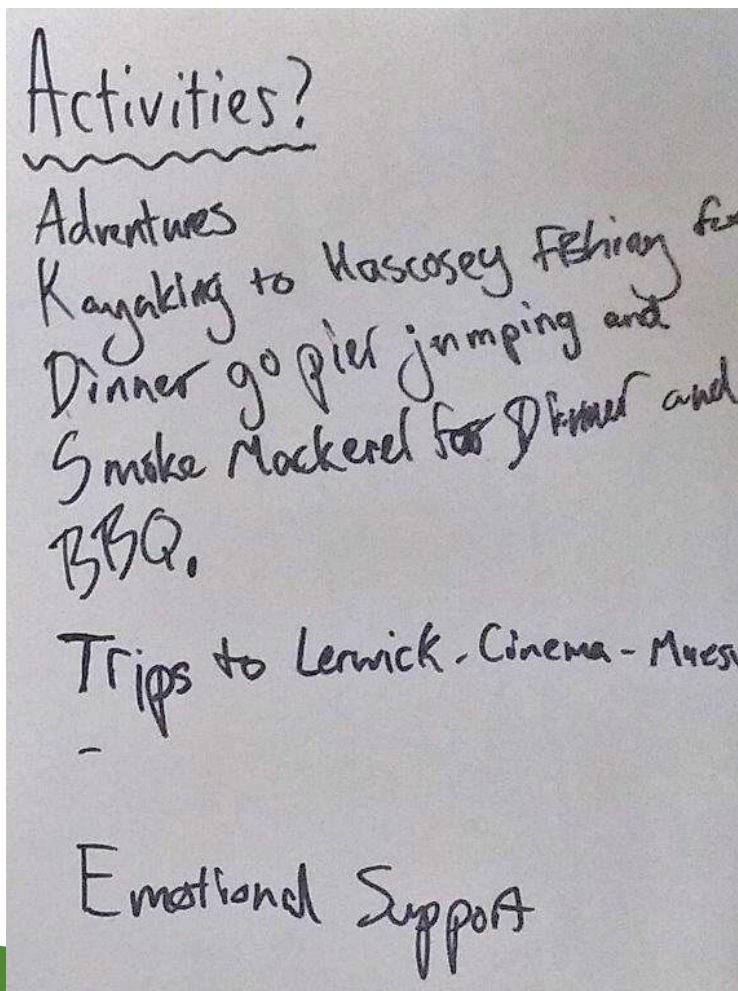 Activities?
Adventures
Kayaking to Hascosey Fishing for
Dinner go pier jumping and
Smoke Mackerel for Dinner and
BBQ.
Trips to Lerwick - Cinema -
-
Emotional Support